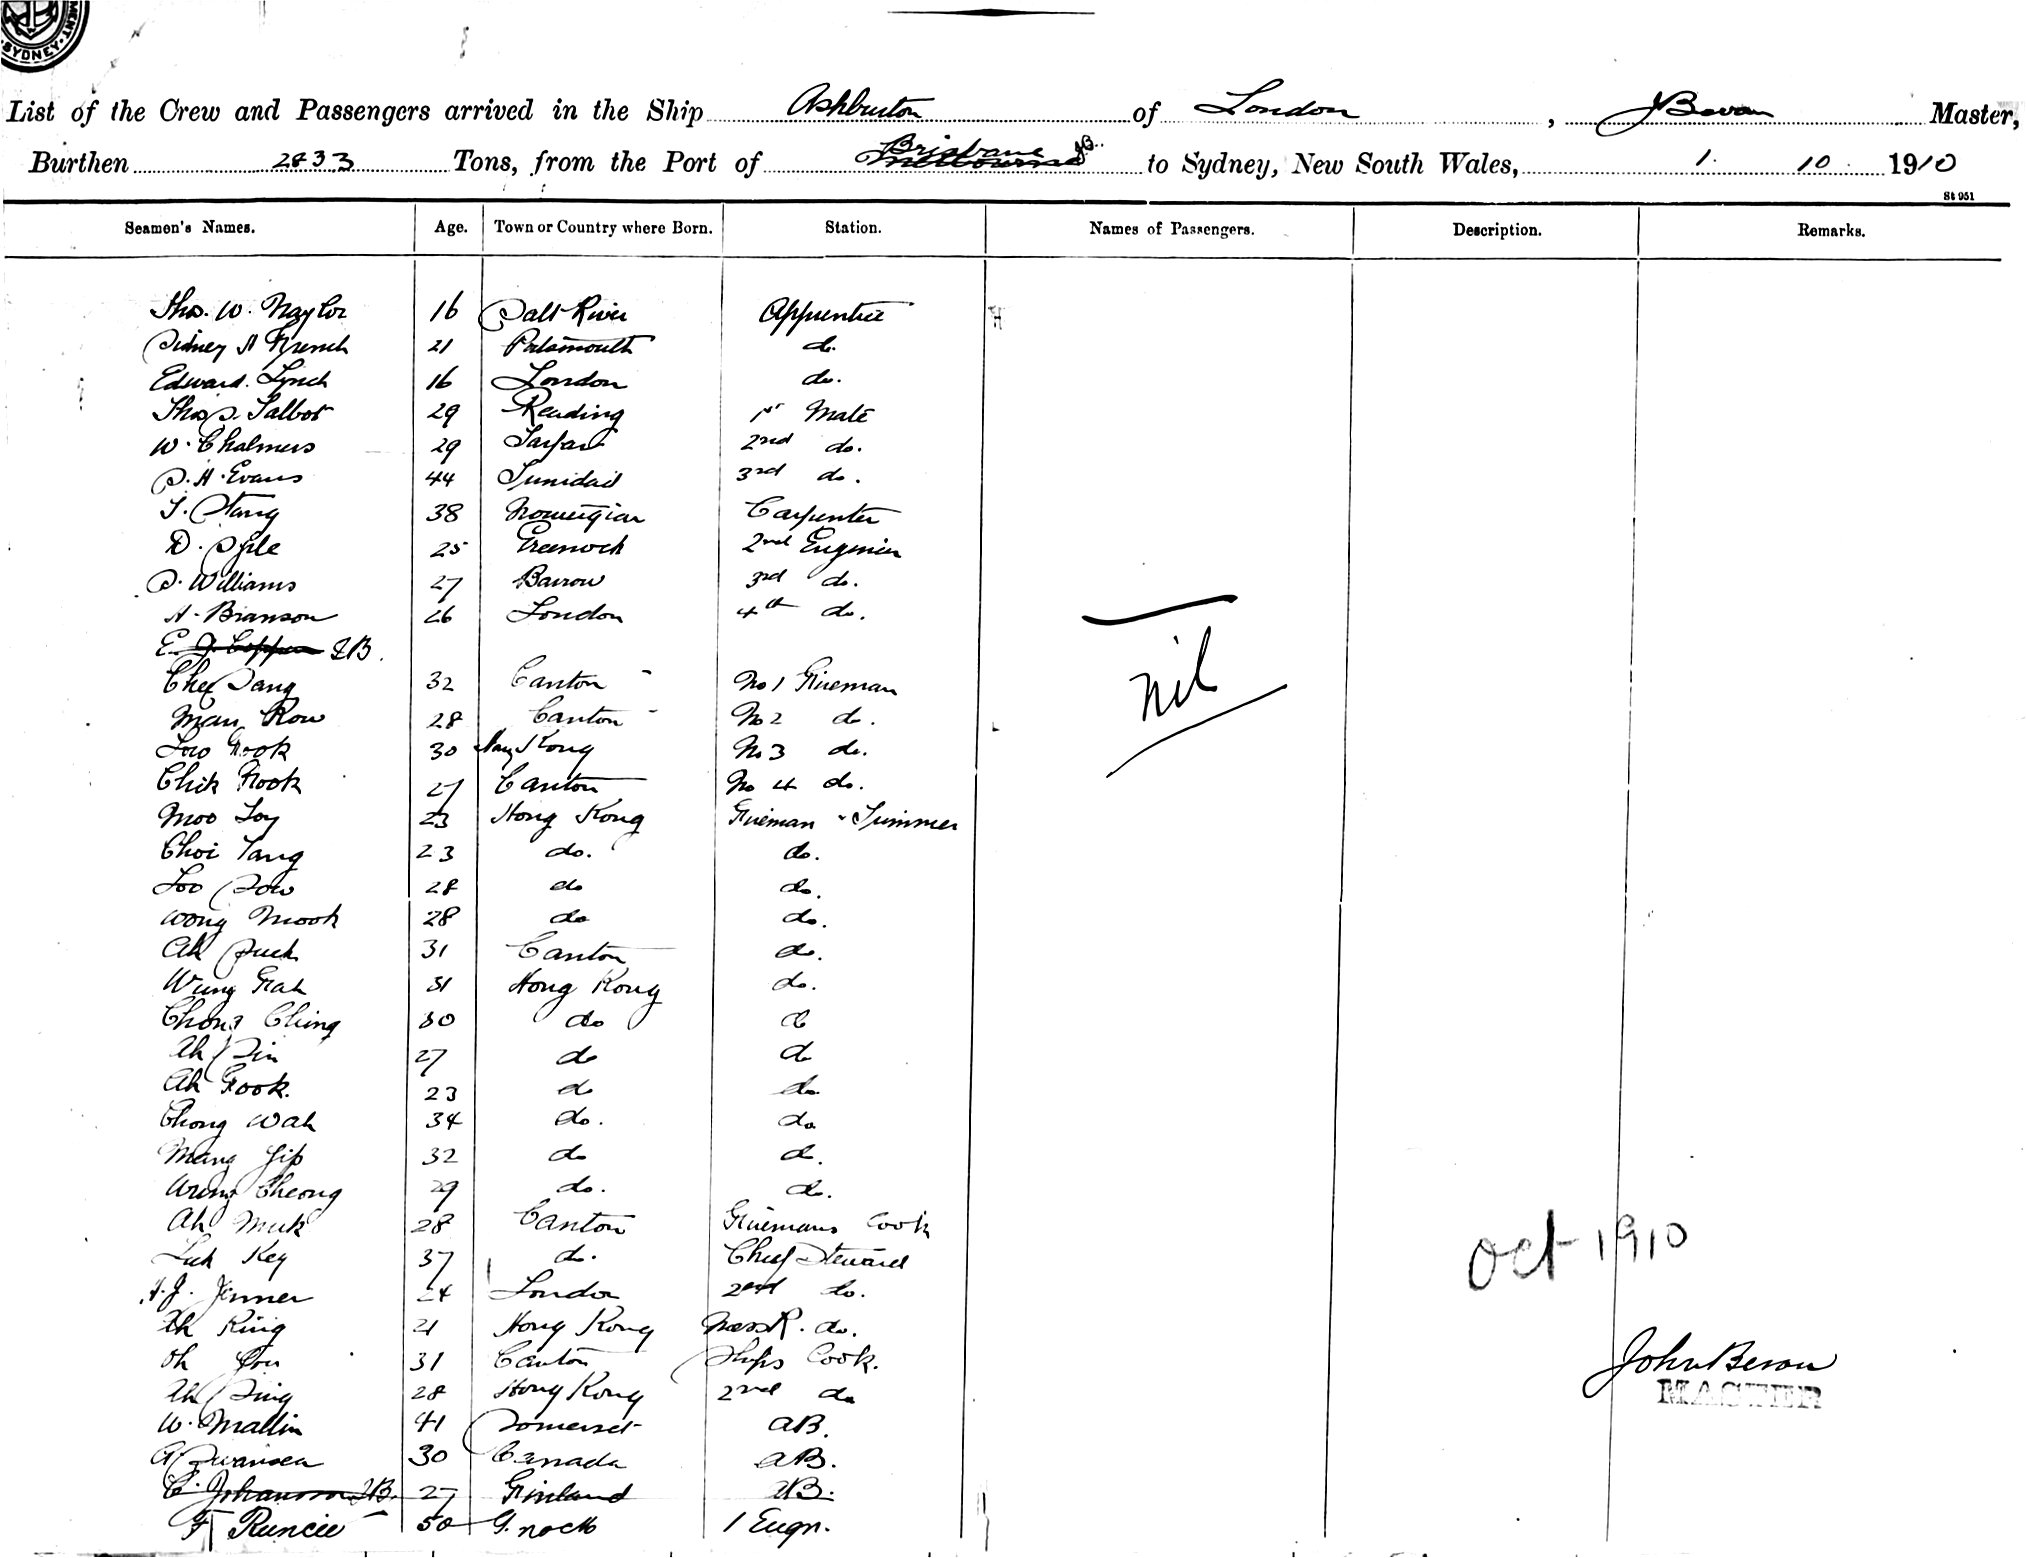 MENT · SYDNEY ·
List of the Crew and Passengers arrived in the Ship Ashburton of London , J Bevan Master,
Burthen 2833 Tons, from the Port of Brisbane Melbourne JB. to Sydney, New South Wales, 1. 10. 1910
St 951
Seamen's Names. Age. Town or Country where Born. Station. Names of Passengers. Description. Remarks.
Thos. W. Naylor 16 Salt River Apprentice
Sidney A French 21 Portsmouth do.
Edward Lynch 16 London do.
Thos S. Talbot 29 Reading 1st Mate
W. Chalmers 29 2nd do.
S. H. Evans 44 Trinidad 3rd do.
T. Stang 38 Norwegian Carpenter
D. Lyle 25 Greenock 2nd Engineer
S. Williams 27 Barrow 3rd do.
A. Branson 26 London 4th do.
E. J. Coppen JB.
Chee Sang 32 Canton No 1 Fireman
Man Kow 28 Canton No 2 do.
Low Fook 30 Kong No 3 do.
Chik Fook 27 Canton No 4 do.
Moo Loy 23 Hong Kong Fireman & Trimmer
Choi Tang 23 do. do.
Loo Sow 28 do do.
Wong Mook 28 do do.
Ah Suck 31 Canton do.
Wung Fah 31 Hong Kong do.
Chong Ching 30 do do
Ah Sin 27 do do
Ah Fook. 23 do do.
Chong Wah 34 do. do
Mang Yip 32 do do.
Wung Cheong 29 do. do.
Ah Muk 28 Canton Firemans Cook
Luk Key 37 do. Chief Steward
A. J. Jenner 24 London 2nd do.
Ah King 21 Hong Kong Mess R. do.
Ah You 31 Canton Ships Cook.
Ah Sing 28 Hong Kong 2nd do
W. Mallin 41 Somerset AB.
G Swansea 30 Canada AB.
C. Johansson JB. 27 Finland AB.
F Runcie 50 G. nock 1 Engn.
nil
Oct 1910
John Bevan
MASTER